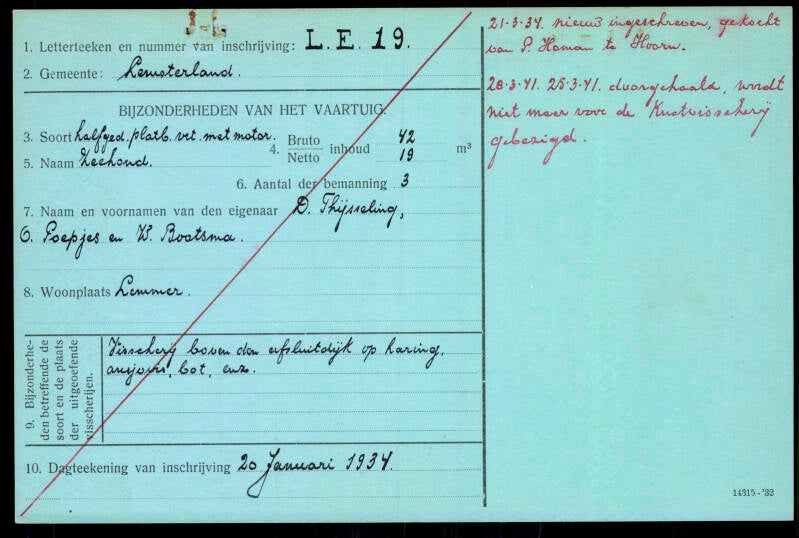 1. Letterteeken en nummer van inschrijving: L.E. 19.
2. Gemeente: Lemsterland.
BIJZONDERHEDEN VAN HET VAARTUIG.
3. Soort halfged. platb. vrt. met motor.
4. Bruto Netto inhoud 42 19 m³
5. Naam Zeehond.
6. Aantal der bemanning 3
7. Naam en voornamen van den eigenaar D. Thijsseling,
O. Poepjes en W. Bootsma.
8. Woonplaats Lemmer.
9. Bijzonderhe-
den betreffende de
soort en de plaats
der uitgeoefende
visscherijen.
Visscherij boven den afsluitdijk op haring,
ansjovis, bot, enz.
10. Dagteekening van inschrijving 20 Januari 1934.
21-3-34. nieuw ingeschreven, gekocht
van P. Homan te Hoorn.
28-3-41. 25-3-41. doorgehaald, wordt
niet meer voor de Kustvisscherij
gebezigd.
14315-'32